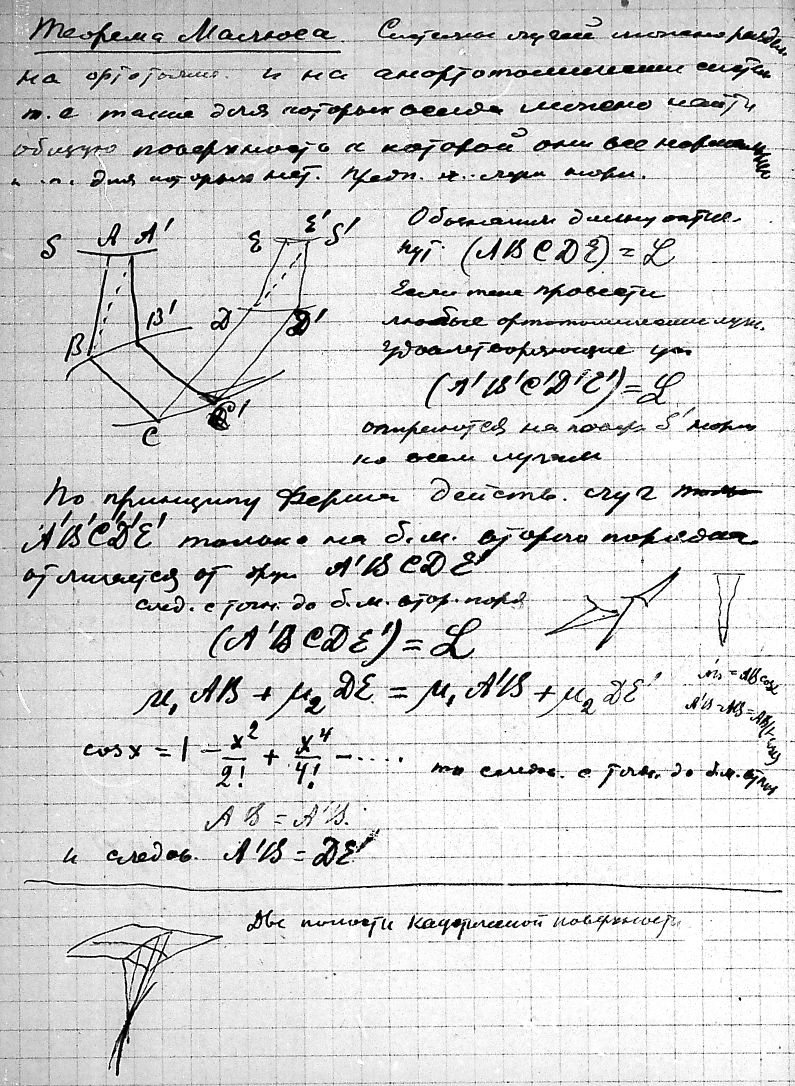 Теорема Малюса. Системы лучей можно раздел
на ортотомич. и на анортотомические систем
т.е такие для которых всегда можно найти
общую поверхность к которой они все нормальны
для которых нет.
S A A' E E' S'
B B' D D'
C C'
Обозначим длину оптич.
пут. (ABCDE) = L
Если теперь провести
любые ортотомические луч.
удовлетворяющие
(A'B'C'D'E') = L
опираются на поверх S' норм
ко всем лучам
По принципу Ферма действ. луч
A'B'C'D'E' только на б.м. второго порядка
отличается от A'BCDE'
след. с точн. до б.м. втор. поря
(A'BCDE') = L
μ₁ AB + μ₂ DE = μ₁ A'B + μ₂ DE'
A'B = AB cos x
A'B - AB = AB(1-cos x)
cos x = 1 - x²/2! + x⁴/4! - ....
то следов. с точн. до б.м.
AB = A'B.
и следов. A'B = DE'
Две полости каустической поверхности